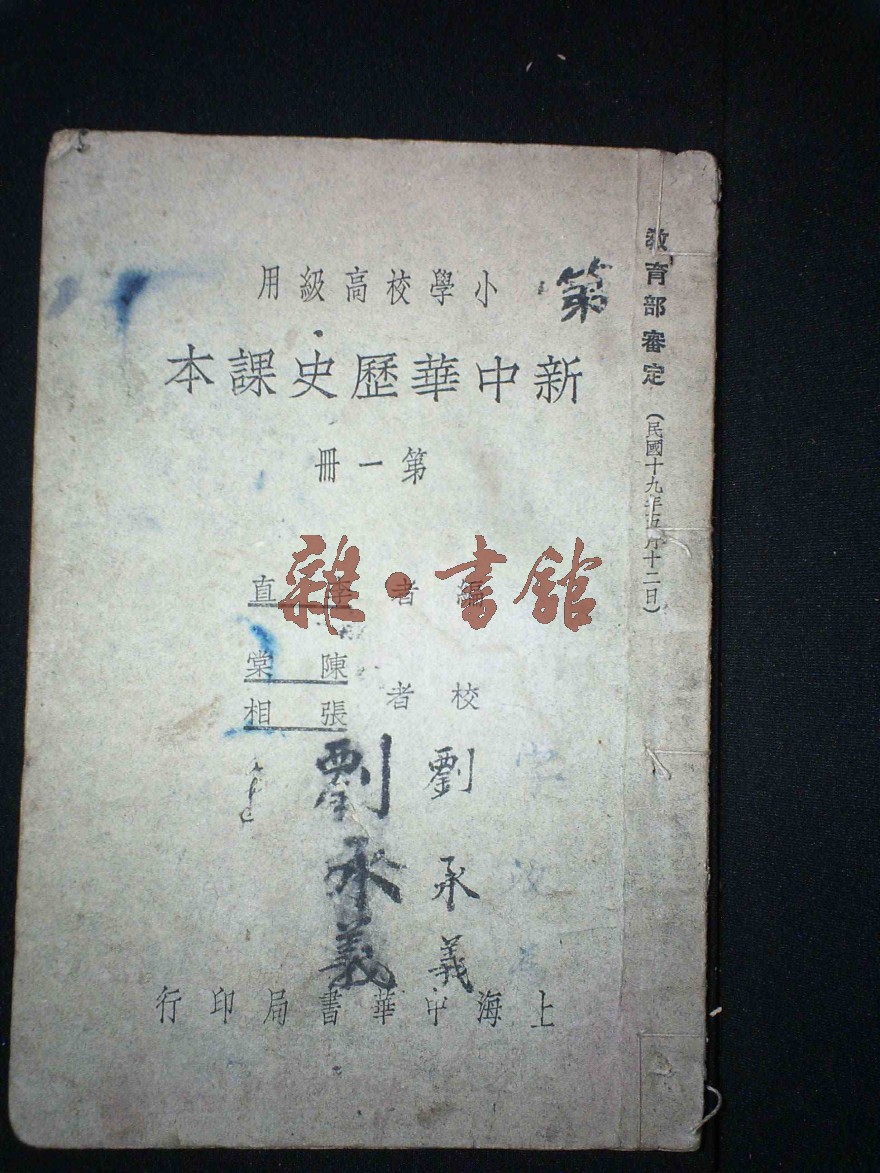 教育部審定（民國十九年五月十二日）
第
小學校高級用
新中華歷史課本
第一冊
編者 李直
雜·書館
校者 陳棠
張相
劉承義
劉承義
上海中華書局印行